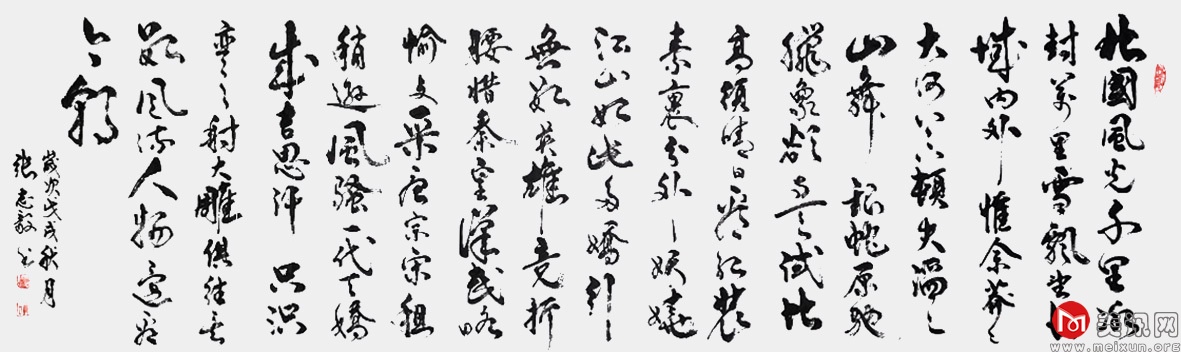 北國風光千里冰
封萬里雪飄望長
城內外惟余莽々
大河上下頓失滔々
山舞銀蛇原馳
臘象欲與天公試比
高須晴日看紅裝
素裹分外妖嬈
江山如此多嬌引
無數英雄競折
腰惜秦皇漢武略
輸文采唐宗宋祖
稍遜風騷一代天嬌
成吉思汗只識
彎弓射大雕俱往矣
數風流人物還看
今朝
歲次戊戌秋月
張志毅書
美讯网
www.meixun.org